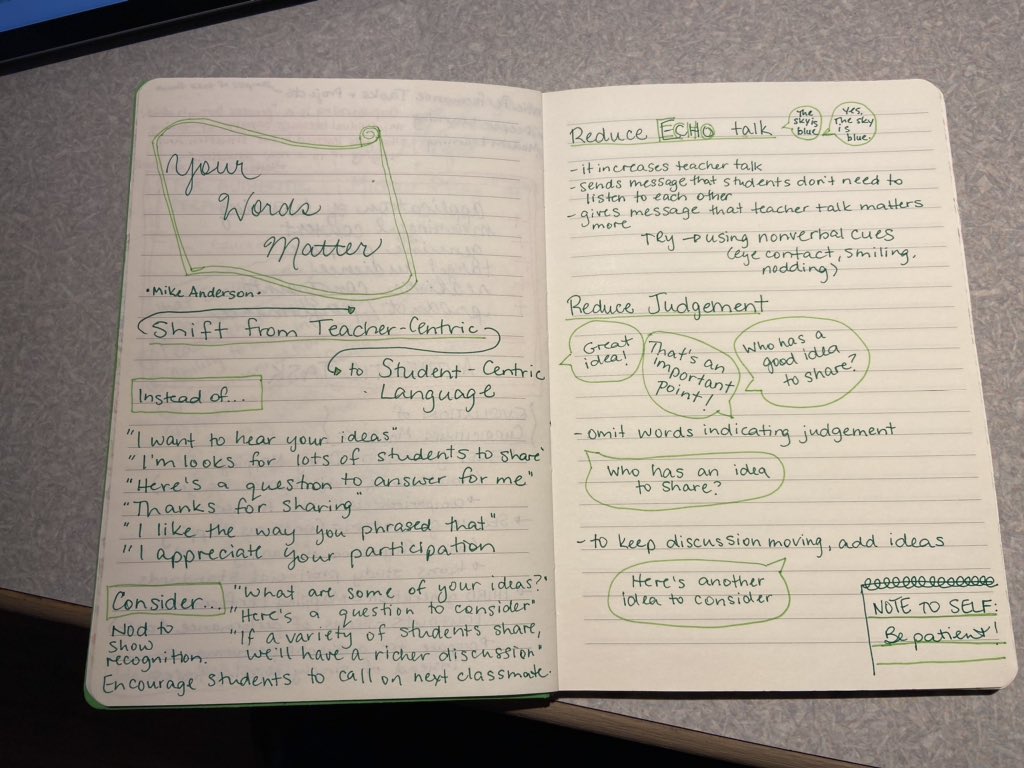 Your
Words
Matter
•Mike Anderson•
Shift from Teacher-Centric
to Student-Centric
Language
Instead of...
"I want to hear your ideas"
"I'm looks for lots of students to share"
"Here's a question to answer for me"
"Thanks for sharing"
"I like the way you phrased that"
"I appreciate your participation
Consider...
"What are some of your ideas?"
"Here's a question to consider"
"If a variety of students share,
we'll have a richer discussion"
Nod to
show
recognition.
Encourage students to call on next classmate.
Reduce ECHO talk
The
sky is
blue
Yes,
The sky
is
blue.
- it increases teacher talk
- sends message that students don't need to
listen to each other
- gives message that teacher talk matters
more
Try → using nonverbal cues
(eye contact, smiling,
nodding)
Reduce Judgement
Great
idea!
That's an
important
point!
Who has a
good idea
to share?
- omit words indicating judgement
Who has an idea
to share?
- to keep discussion moving, add ideas
Here's another
idea to consider
NOTE TO SELF:
Be patient!